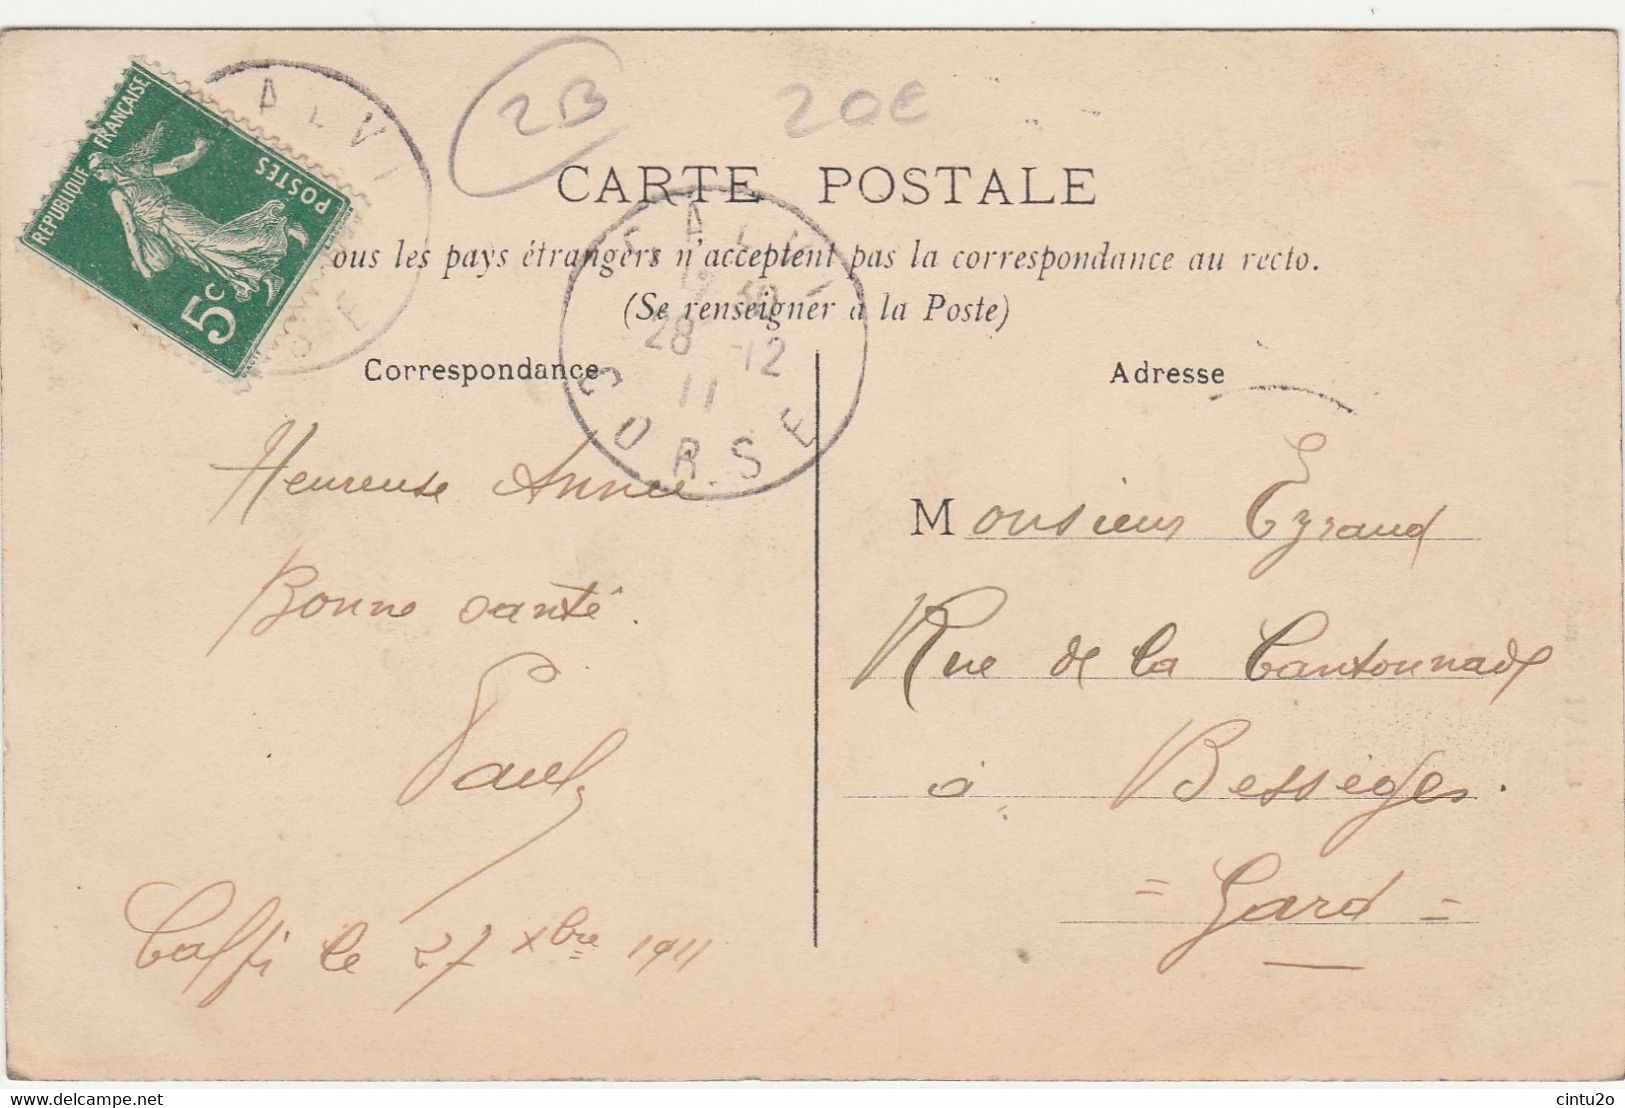 2B
20€
REPUBLIQUE FRANÇAISE
POSTES
5c
ALVI
CE
CARTE POSTALE
ous les pays étrangers n'acceptent pas la correspondance au recto.
(Se renseigner à la Poste)
CALVI
30
28 -12
11
CORSE
Correspondance
Heureuse Année
Bonne santé.
Paul
le 27 Xbre 1911
Adresse
Monsieur Eyraud
Rue de la Cantonnade
à Bessèges.
= Gard =
delcampe.net
cintu2o